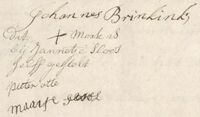 Johannes Brinkink
Dit + Merk is
bij Jannetie Sloos
Self gestelt
pieter otte
maartje